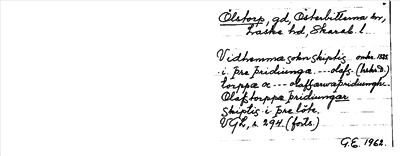 Olstorp, gd, Österbitterna sn,
Laske hd, Skarab. l.
Vidhemma sokn skiptis omkr. 1325
i þre þriðiunga --- olafs-(hskr. D.)
torppa oc --- olafsærwaþriðiunghr.
Olafstorppa þriðiungar
skiptis i þre löte.
VGL, s. 294. (forts.)
G.E. 1962.